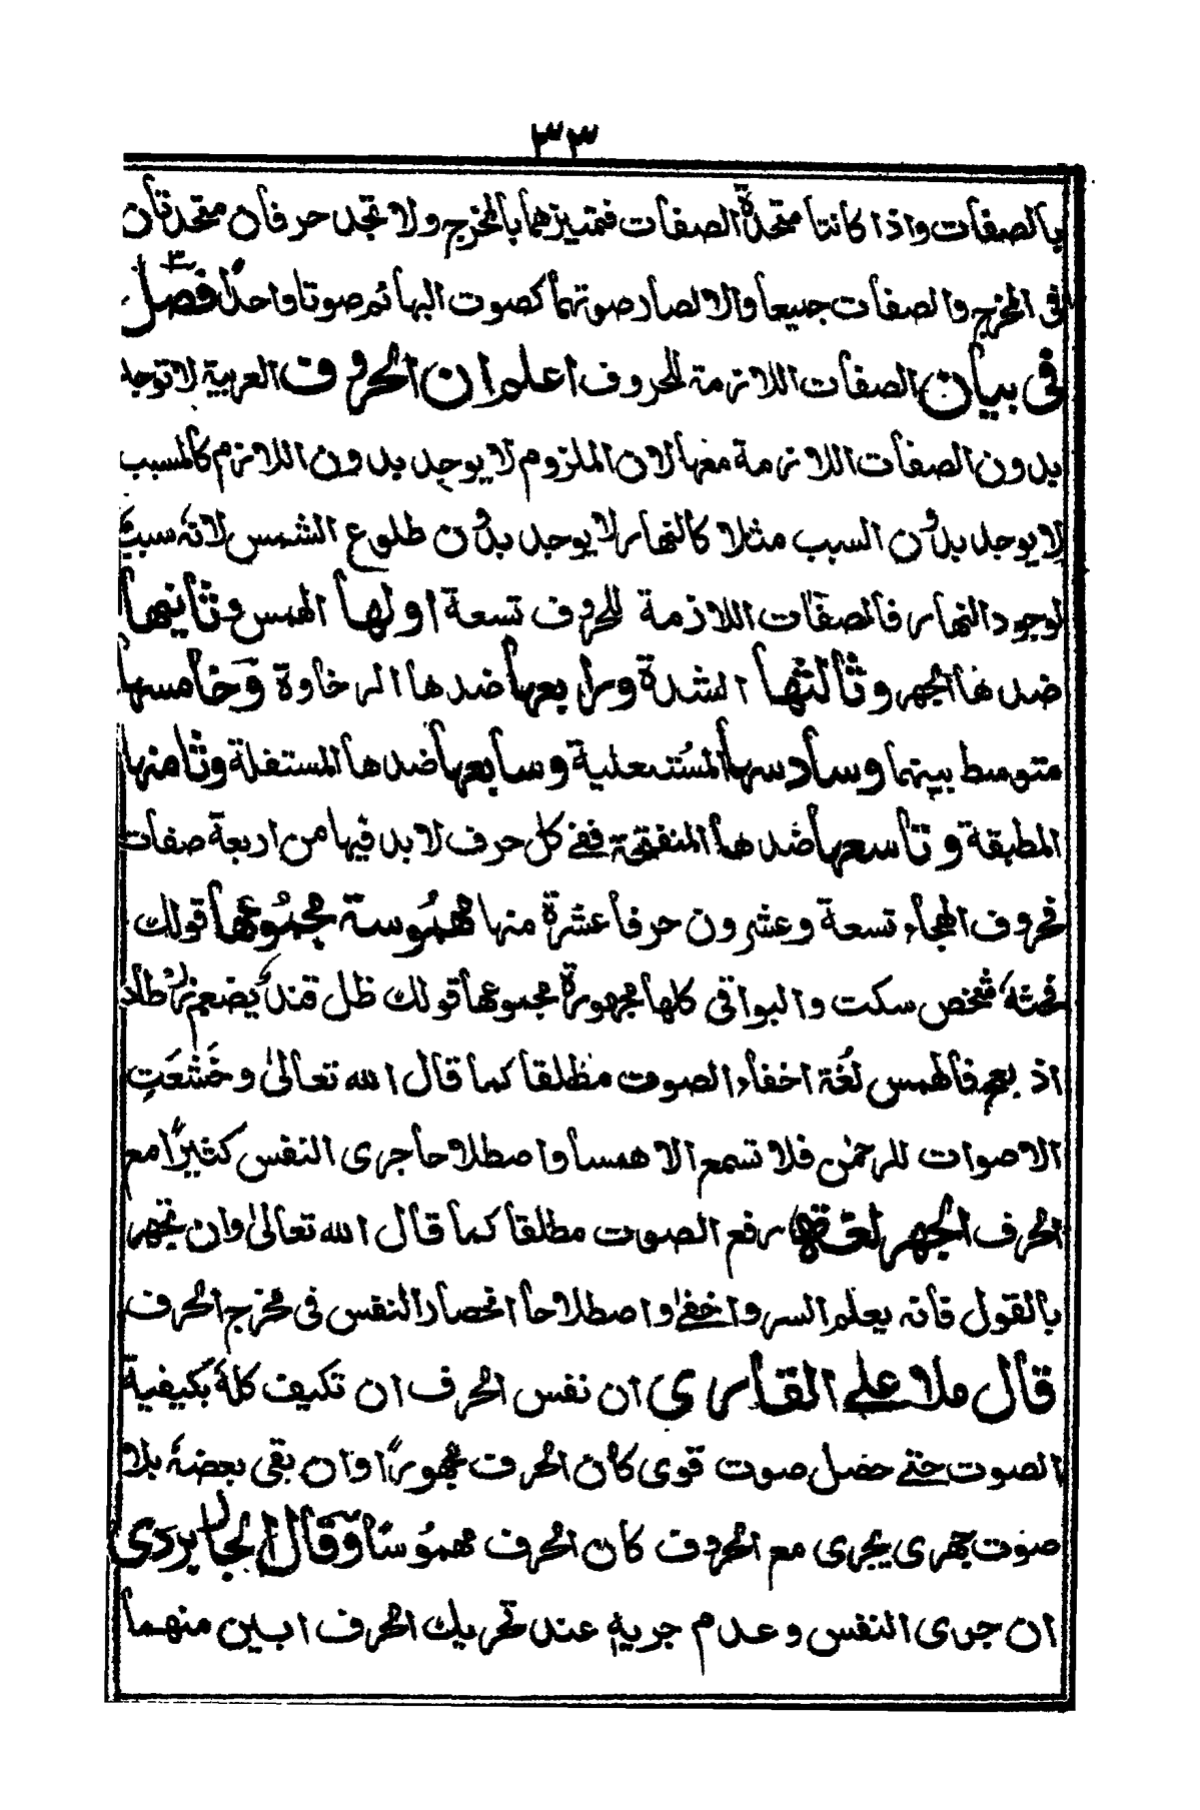 ٣٣
بالصفات واذا كانتا متحدة الصفات فتميزهما بالمخرج ولا تجد حرفان متحدتان
فى المخرج والصفات جميعا والا لصار صوتهما كصوت البهائم صوتا واحدًا فصل
فى بيان الصفات اللازمة للحروف اعلم ان الحروف العربية لا توجد
بدون الصفات اللازمة معها لان الملزوم لا يوجد بدون اللازم كالمسبب
لا يوجد بدون السبب مثلا كالنهار لا يوجد بدون طلوع الشمس لانه سبب
لوجود النهار فالصفات اللازمة للحروف تسعة اولها الهمس وثانيها
ضدها الجهر وثالثها الشدة ورابعها ضدها الرخاوة وخامسها
متوسط بينهما وسادسها المستعلية وسابعها ضدها المستفلة وثامنها
المطبقة وتاسعها ضدها المنفتحة ففے كل حرف لا بد فيها من اربعة صفات
فحروف الهجاء تسعة وعشرون حرفا عشرة منها مهموسة مجموعها قولك
فحثه شخص سكت والبواقى كلها مجهورة مجموعها قولك ظل قند يضغم زر طاذ
اذ بعج فالهمس لغة اخفاء الصوت مطلقا كما قال الله تعالىٰ وخشعت
الاصوات للرحمٰن فلا تسمع الا همسا واصطلاحا جرى النفس كثيرًا مع
الحرف الجهر لغة رفع الصوت مطلقا كما قال الله تعالىٰ وان تجهر
بالقول فانه يعلم السر واخفےٰ واصطلاحا انحصار النفس فى مخرج الحرف
قال ملا علے القارى ان نفس الحرف ان تكيف كله بكيفية
الصوت حتے حصل صوت قوى كان الحرف مجهورًا وان بقى بعضه بلا
صوت جهرى يجرى مع الحروف كان الحرف مهموسًا وقال الجاربردى
ان جرى النفس وعدم جريه عند تحريك الحرف ابين منهما